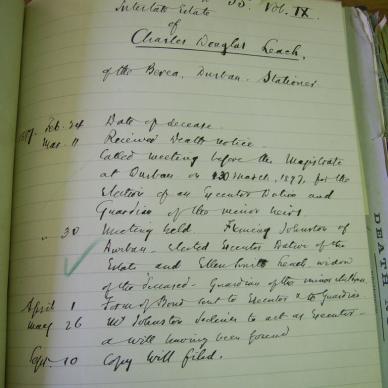 Intestate Estate 33. Vol. IX.
of
Charles Douglas Leach,
of the Berea, Durban. Stationer
1897. Feb. 24 Date of decease.
Mar. 11 Received Death notice.
Called meeting before the Magistrate
at Durban on 30 March, 1897, for the
Election of an Executor Dative and
Guardian of the minor heirs
" 30 Meeting held. Fleming Johnston of
Durban elected Executor Dative of the
Estate and Ellen Leach widow
of the deceased Guardian of the minor children.
April 1 Form of Bond sent to Executor & to Guardian
May 26 Mr Johnston declines to act as Executor
a will having been found
Sept. 10 Copy Will filed.
DEATH